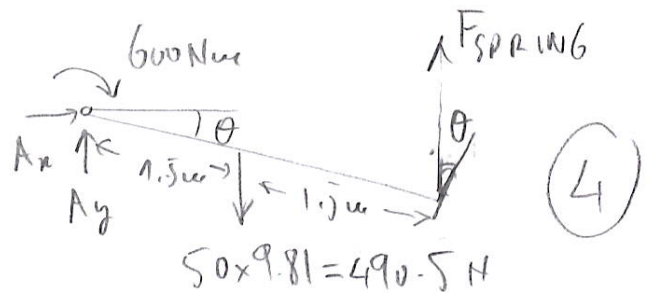 600Nm
FSPRING
θ
θ
Ax
1.5m
1.5m
4
Ay
50x9.81=490.5 N